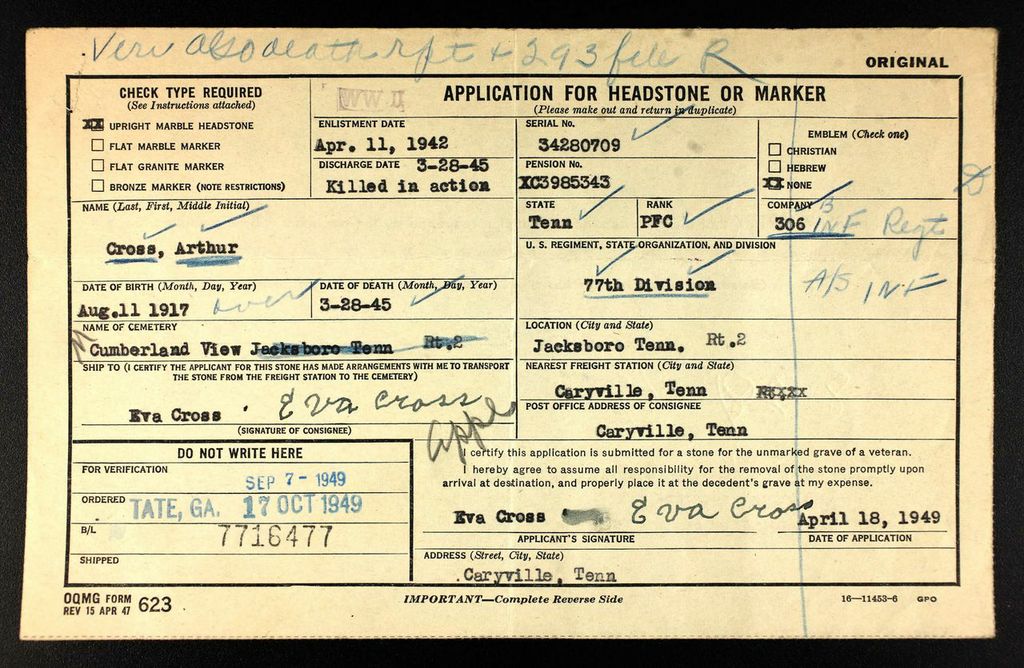 Veri also death rpt + 293 file R
ORIGINAL
CHECK TYPE REQUIRED
(See Instructions attached)
XX UPRIGHT MARBLE HEADSTONE
FLAT MARBLE MARKER
FLAT GRANITE MARKER
BRONZE MARKER (NOTE RESTRICTIONS)
WW II
APPLICATION FOR HEADSTONE OR MARKER
(Please make out and return in duplicate)
ENLISTMENT DATE
Apr. 11, 1942
DISCHARGE DATE 3-28-45
Killed in action
SERIAL No.
34280709
PENSION No.
XC3985343
EMBLEM (Check one)
CHRISTIAN
HEBREW
XX NONE
STATE
Tenn
RANK
PFC
COMPANY B
306 INF Regt
NAME (Last, First, Middle Initial)
Cross, Arthur
U. S. REGIMENT, STATE ORGANIZATION, AND DIVISION
77th Division
A/S INF
DATE OF BIRTH (Month, Day, Year)
Aug.11 1917 over
DATE OF DEATH (Month, Day, Year)
3-28-45
NAME OF CEMETERY
Cumberland View Jacksboro Tenn Rt.2
LOCATION (City and State)
Jacksboro Tenn. Rt.2
SHIP TO (I CERTIFY THE APPLICANT FOR THIS STONE HAS MADE ARRANGEMENTS WITH ME TO TRANSPORT
THE STONE FROM THE FREIGHT STATION TO THE CEMETERY)
Eva Cross . Eva Cross
(SIGNATURE OF CONSIGNEE)
appl
NEAREST FREIGHT STATION (City and State)
Caryville, Tenn
POST OFFICE ADDRESS OF CONSIGNEE
Caryville, Tenn
DO NOT WRITE HERE
FOR VERIFICATION
SEP 7 - 1949
ORDERED TATE, GA. 17 OCT 1949
B/L
7716477
SHIPPED
I certify this application is submitted for a stone for the unmarked grave of a veteran.
I hereby agree to assume all responsibility for the removal of the stone promptly upon
arrival at destination, and properly place it at the decedent's grave at my expense.
Eva Cross Eva Cross April 18, 1949
APPLICANT'S SIGNATURE
DATE OF APPLICATION
ADDRESS (Street, City, State)
.Caryville, Tenn
OQMG FORM
REV 15 APR 47 623
IMPORTANT—Complete Reverse Side
16—11453-6 GPO